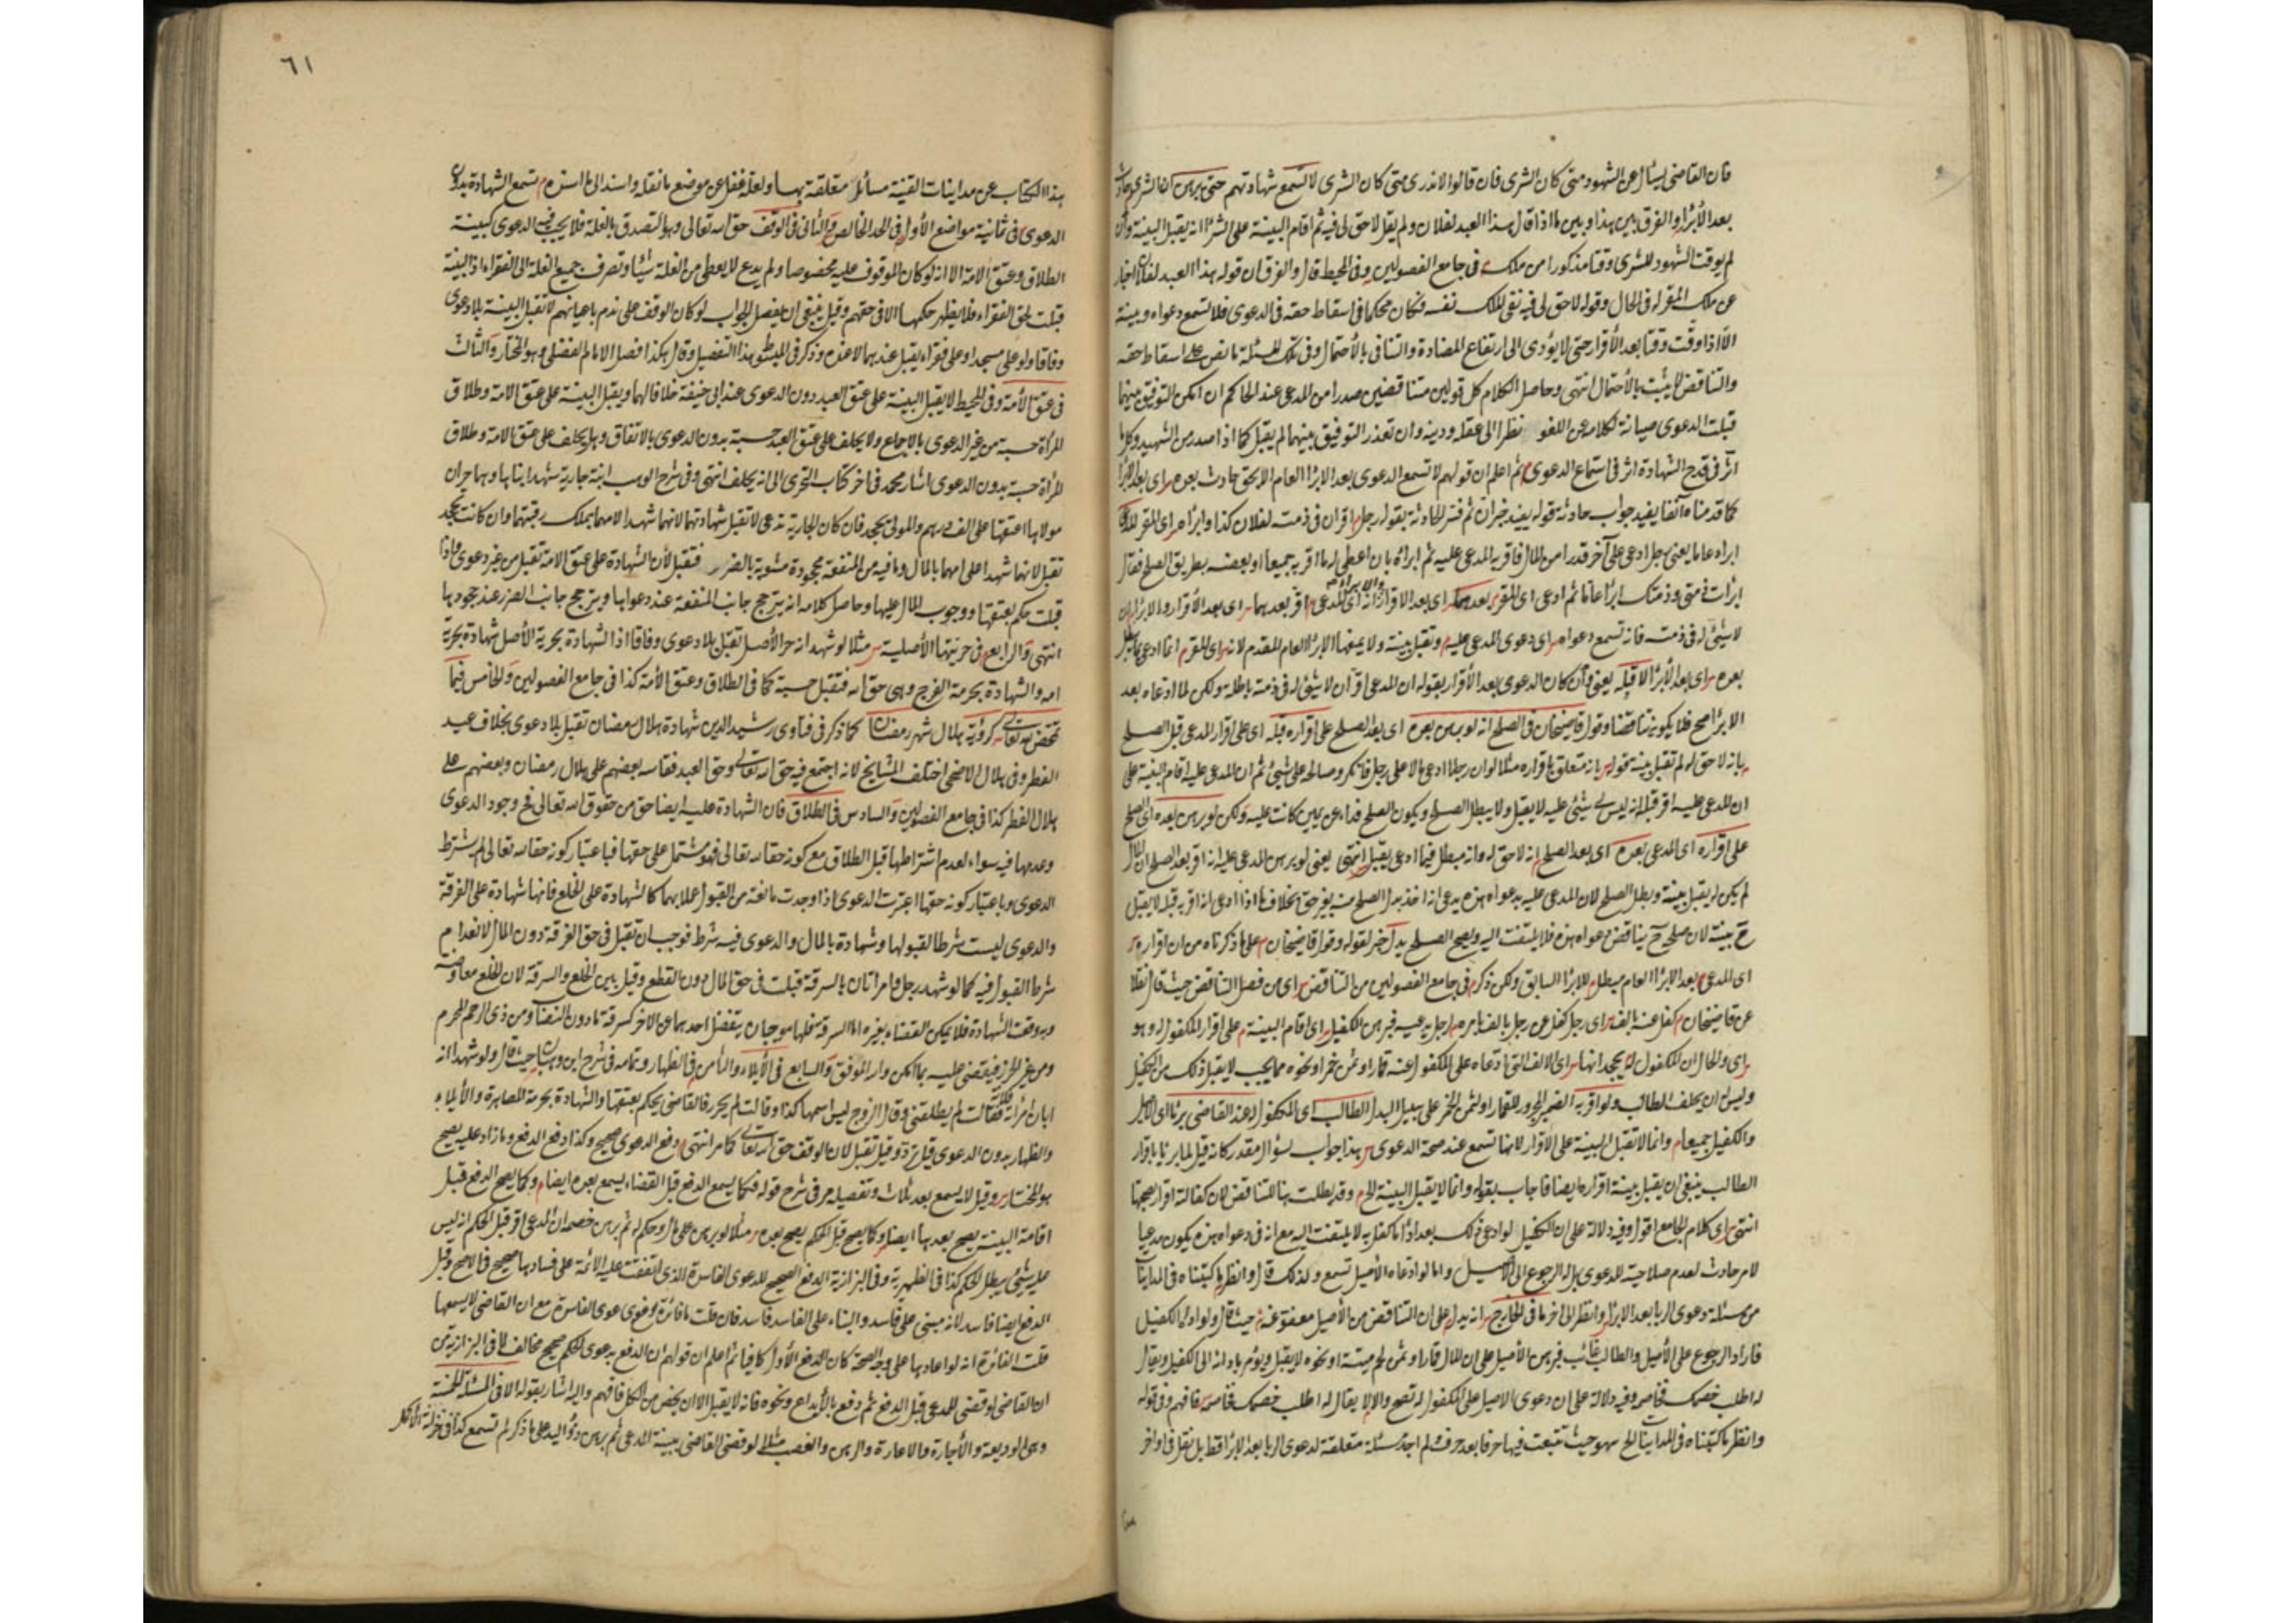 فان القاضى يسأل عن الشهود متى كان الشرى فان قالوا لا ندرى متى كان الشرى لا تسمع شهادتهم حتى يبرهن ان الشرى حادث
بعد الأبراء والفرق بين هذا وبين ما اذا قال هذا العبد لفلان ولم يقل لا حق لى فيه ثم اقام البينة على الشراء انه يقبل البينة وان
لم يوقت الشهود للشرى وقتا مذكورا من ملك فى جامع الفصولين وفى المحيط قال والفرق ان قوله هذا العبد لفلان اخبار
عن ملك المقر له فى الحال وقوله لا حق لى فيه نفى الملك نفسه فكان محكما فى اسقاط حقه فى الدعوى فلا تسمع دعواه وبينة
الا اذا وقت وقتا بعد الأقرار حتى لا يؤدى الى ارتفاع المضادة والتنافى بالأحتمال وفى تلك المسئلة ما نص على اسقاط حقه
والتناقض لا يثبت بالأحتمال انتهى وحاصل الكلام كل قولين متناقضين صدرا من المدعى عند الحاكم ان امكن التوفيق بينهما
قبلت الدعوى صيانة لكلامه عن اللغو نظرا الى عقله ودينه وان تعذر التوفيق بينهما لم يقبل كما اذا صدر من الشهيد وكل ما
اثر فى قدح الشهادة اثر فى استماع الدعوى ثم اعلم ان قولهم لا تسمع الدعوى بعد الابراء العام الا بحق حادث بعده اى بعد الابراء
كما قدمناه آنفا يفيد جواب حادثة قوله يفيد خبر ان ثم فسر الحادثة بقوله رجل اقر ان فى ذمته لفلان كذا وابراه اى المقر له
ابراء عاما يعنى رجل ادعى على آخر قدرا من المال فاقر به المدعى عليه ثم ابراه بان اعطى له ما اقر به جميعا او بعضه بطريق الصلح فقال
ابرأت ذمتى وذمتك ابراء عاما ثم ادعى اى المقر بعدهما اى بعد الاقرار والابراء انه اى المدعى اقر بعدهما اى بعد الأقرار والابراء ان
لا شئ له فى ذمته فانه تسمع دعواه اى دعوى المدعى عليه وتقبل بينة ولا يمنعها الابراء العام المقدم لانه اى المقر انما ادعى بما يبطل
بعده اى بعد الأبراء لا قبله يعنى وان كان الدعوى بعد الأقرار بقوله ان المدعى اقر ان لا شئ له فى ذمته باطلة ولكن لما ادعاه بعد
الابراء صح فلا يكون تناقضا وقول قاضيخان فى الصلح انه لو برهن بعده اى بعد الصلح على اقراره قبله اى على اقرار المدعى قبل الصلح
بانه لا حق له لم تقبل بينة بقوله بانه متعلق باقراره مثلا لو ان رجلا ادعى مالا على رجل فانكر وصالحه على شئ ثم ان المدعى عليه اقام البينة على
ان المدعى عليه اقر قبل انه ليس لى شئ عليه لا يقبل ولا يبطل الصلح ويكون الصلح فداء عن يمين كانت عليه ولكن لو برهن بعده اى الصلح
على اقراره اى المدعى بعده اى بعد الصلح انه لا حق له وانه مبطل فيما ادعى يقبل انتهى يعنى لو برهن المدعى عليه انه اقر بعد الصلح ان المال
لم يكن له يقبل بينة وبطل الصلح لان المدعى عليه بدعواه هذه يدعى انه اخذ بدل الصلح منه بغير حق بخلاف ما اذا ادعى انه اقر به قبله لا يقبل
ح بينة لان صلحه ح يناقض دعواه هذه فلا يلتفت اليه ويصح الصلح يدا آخر لقوله وقول قاضيخان على ما ذكرناه من ان اقراره
اى المدعى بعد الابراء العام مبطل للابراء السابق ولكن ذكر فى جامع الفصولين من التناقض اى من فصل التناقض حيث قال نقلا
عن قاضيخان كفل عنه بالف اى رجل كفل عن رجل بالف بامره لرجل يدعيه فبرهن الكفيل اى اقام البينة على اقرار المكفول له وهو
اى والحال ان المكفول له يجحد انها اى الالف التى ادعاه على المكفول عنه قمار او ثمن خمر او نحوه مما يجب لا يقبل ذلك من الكفيل
وليس له ان يحلف الطالب ولو اقر به الضمير المجرور للقمار او لثمن الخمر على سبيل البدل الطالب اى المكفول له عند القاضى برئا اى الاصيل
والكفيل جميعا وانما لا تقبل البينة على الاقرار لانها تسمع عند صحة الدعوى هذا جواب لسؤال مقدر كانه قيل لما برئا باقرار
الطالب ينبغى ان يقبل بينة اقراره ايضا فاجاب بقوله وانما لا يقبل البينة الخ وقد بطلت هنا للتناقض لان كفالته اقرار بصحتها
انتهى اى كلام الجامع اقول وفيه دلالة على ان الكفيل لو ادعى ذلك بعد اداء ما كفل به لا يلتفت اليه مع انه فى دعواه هذه يكون مدعيا
لامر حادث لعدم صلاحية للدعوى بل له الرجوع الى الاصيل واما لو ادعاه الأصيل تسمع ولذلك قال وانظر ما كتبناه فى المداينات
من مسئلة دعوى الربا بعد الابراء وانظر الى اخر ما فى الخارج انه يدل على ان التناقض من الأصيل معفو عنه حيث قال ولو ادى الكفيل
فاراد الرجوع على الأصيل والطالب غائب فبرهن الأصيل على ان المال قمار او ثمن خمر ميتة او نحوه لا يقبل ويؤمر باداءه الى الكفيل ويقال
له اطلب خصمك فخاصم وفيه دلالة على ان دعوى الاصيل على المكفول له تصح والا لا يقال له اطلب خصمك فخاصم فافهم وفى قوله
وانظر ما كتبناه فى المداينات الخ سهو حيث تتبعت فيها حرفا بعد حرف ولم اجد مسئلة متعلقة لدعوى الربا بعد الابراء قط بل نقل فى اواخر
٦١
هذا الكتاب عن مداينات القنية مسائل متعلقة بها ولعله غفل عن موضع ما نقله واسند الى ما اسنده تسمع الشهادة بدون
الدعوى فى ثمانية مواضع الأول فى الحد الخالص والثانى فى الوقف حق الله تعالى وهو التصدق بالغلة فلا يجب فيه الدعوى كبينة
الطلاق وعتق الامة الا انه لو كان الموقوف عليه مخصوصا ولم يدع لا يعطى من الغلة شيئا وتصرف جميع الغلة الى الفقراء اذ البينة
قبلت لحق الفقراء فلا يظهر حكمها الا فى حقهم وقيل ينبغى ان يفصل الجواب لو كان الوقف على قوم باعيانهم لا تقبل البينة بلا دعوى
وفاقا ولو على مسجد او على فقراء يقبل عندهما لا عنده وذكر فى المبسوط هذا التفصيل وقال هكذا فصل الامام الفضلى وهو المختار والثالث
فى عتق الأمة وفى المحيط لا يقبل البينة على عتق العبد دون الدعوى عند ابى حنيفة خلافا لهما ويقبل البينة على عتق الامة وطلاق
المرأة حسبة من غير الدعوى بالاجماع ولا يحلف على عتق العبد حسبة بدون الدعوى بالاتفاق وهل يحلف على عتق الامة وطلاق
المرأة حسبة بدون الدعوى اشار محمد فى اخر كتاب التحرى الى انه يحلف انتهى وفى شرح الوهبانية جارية شهد ابناها وهما حران
مولاها اعتقها على الف درهم والمولى يجحد فان كان الجارية تدعى لا تقبل شهادتهما لانهما شهدا لامهما بملك رقبتها وان كانت تجحد
تقبل لانهما شهدا على امهما بالمال وما فيه من المنفعة مجحودة مشوبة بالضرر فتقبل لأن الشهادة على عتق الامة تقبل من غير دعوى واذا
قبلت حكم بعتقها ووجوب المال عليها وحاصل كلامه انه يترجح جانب المنفعة عند دعواها ويترجح جانب الضرر عند جحودها
انتهى والرابع فى حريتها الأصلية مثلا لو شهد انه حر الأصل تقبل بلا دعوى وفاقا اذ الشهادة بحرية الأصل شهادة بحرية
امه والشهادة بحرمة الفرج وهى حق الله فتقبل حسبة كما فى الطلاق وعتق الأمة كذا فى جامع الفصولين والخامس فيما
تمحض لله تعالى كرؤية هلال شهر رمضان كما ذكر فى فتاوى رشيد الدين شهادة هلال رمضان تقبل بلا دعوى بخلاف عيد
الفطر وفى هلال الاضحى اختلف المشايخ لانه اجتمع فيه حق الله تعالى وحق العبد فقاسه بعضهم على هلال رمضان وبعضهم على
هلال الفطر كذا فى جامع الفصولين والسادس فى الطلاق فان الشهادة عليه ايضا حق من حقوق الله تعالى فح وجود الدعوى
وعدمها فيه سواء لعدم اشتراطها قبل الطلاق مع كونه حقا لله تعالى فهو مشتمل على حقها فباعتبار كونه حقا لله تعالى لم يشترط
الدعوى وباعتبار كونه حقها اعتبرت الدعوى اذا وجدت مانعة من القبول عملا بهما كالشهادة على الخلع فانها شهادة على الفرقة
والدعوى ليست شرطا لقبولها وشهادة بالمال والدعوى فيه شرط فوجب ان تقبل فى حق الفرقة دون المال لانعدام
شرط القبول فيه كما لو شهد رجل وامرأتان بالسرقة قبلت فى حق المال دون القطع وقيل بين الخلع والسرقة لان الخلع معاوضة
وبه وقعت الشهادة فلا يمكن القضاء بغيره اما السرقة فلها موجبان ينفصل احدهما عن الاخر كسرقة ما دون النصاب ومن ذى الرحم المحرم
ومن غير الحرز فيقضى عليه بما امكن والله الموفق والسابع فى الأيلاء والثامن فى الظهار وتمامه فى شرح ابن وهبان حيث قال ولو شهدا انه
ابان امرأته فلانة فقالت لم يطلقنى وقال الزوج ليس اسمها كذا وقالت لم يحرر فالقاضى يحكم بعتقها والشهادة بحرمة المصاهرة والأيلاء
والظهار بدون الدعوى قيل ترد وقيل تقبل لان الوقف حق الله تعالى كما مر انتهى دفع الدعوى صحيح وكذا دفع الدفع وما زاد عليه يصح
هو المختار وقيل لا يسمع بعد ثلاث وتفصيله مر فى شرح قوله فكما يسمع الدفع قبل القضاء يسمع بعده ايضا وكما يصح الدفع قبل
اقامة البينة يصح بعدها ايضا وكما يصح قبل الحكم يصح بعده مثلا لو برهن على مال وحكم له ثم برهن خصمه ان المدعى اقر قبل الحكم انه ليس
عليه شئ يبطل الحكم كذا فى الظهيرية وفى البزازية الدفع الصحيح للدعوى الفاسدة الذى اتفقت عليه الائمة على فسادها صحيح فى الاصح وقيل
الدفع ايضا فاسد لانه مبنى على فاسد والبناء على الفاسد فاسد فان قلت ما فائدة دعوى الفاسدة مع ان القاضى لا يسمعها
قلت الفائدة انه لو اعادها على وجه الصحة كان الدفع الأول كافيا ثم اعلم ان قولهم ان الدفع بدعوى الحكم صحيح مخالف لما فى البزازية من
ان القاضى لو قضى للمدعى قبل الدفع ثم دفع بالأيداع ونحوه فانه لا يقبل الا ان يخص من الكل فافهم واليه اشار بقوله الا فى المسئلة المخمسة
وهى الوديعة والأجارة والاعارة والرهن والغصب مثلا لو قضى القاضى ببينة المدعى ثم برهن ذو اليد على ما ذكر لم تسمع كذا فى خزانة الأكمل